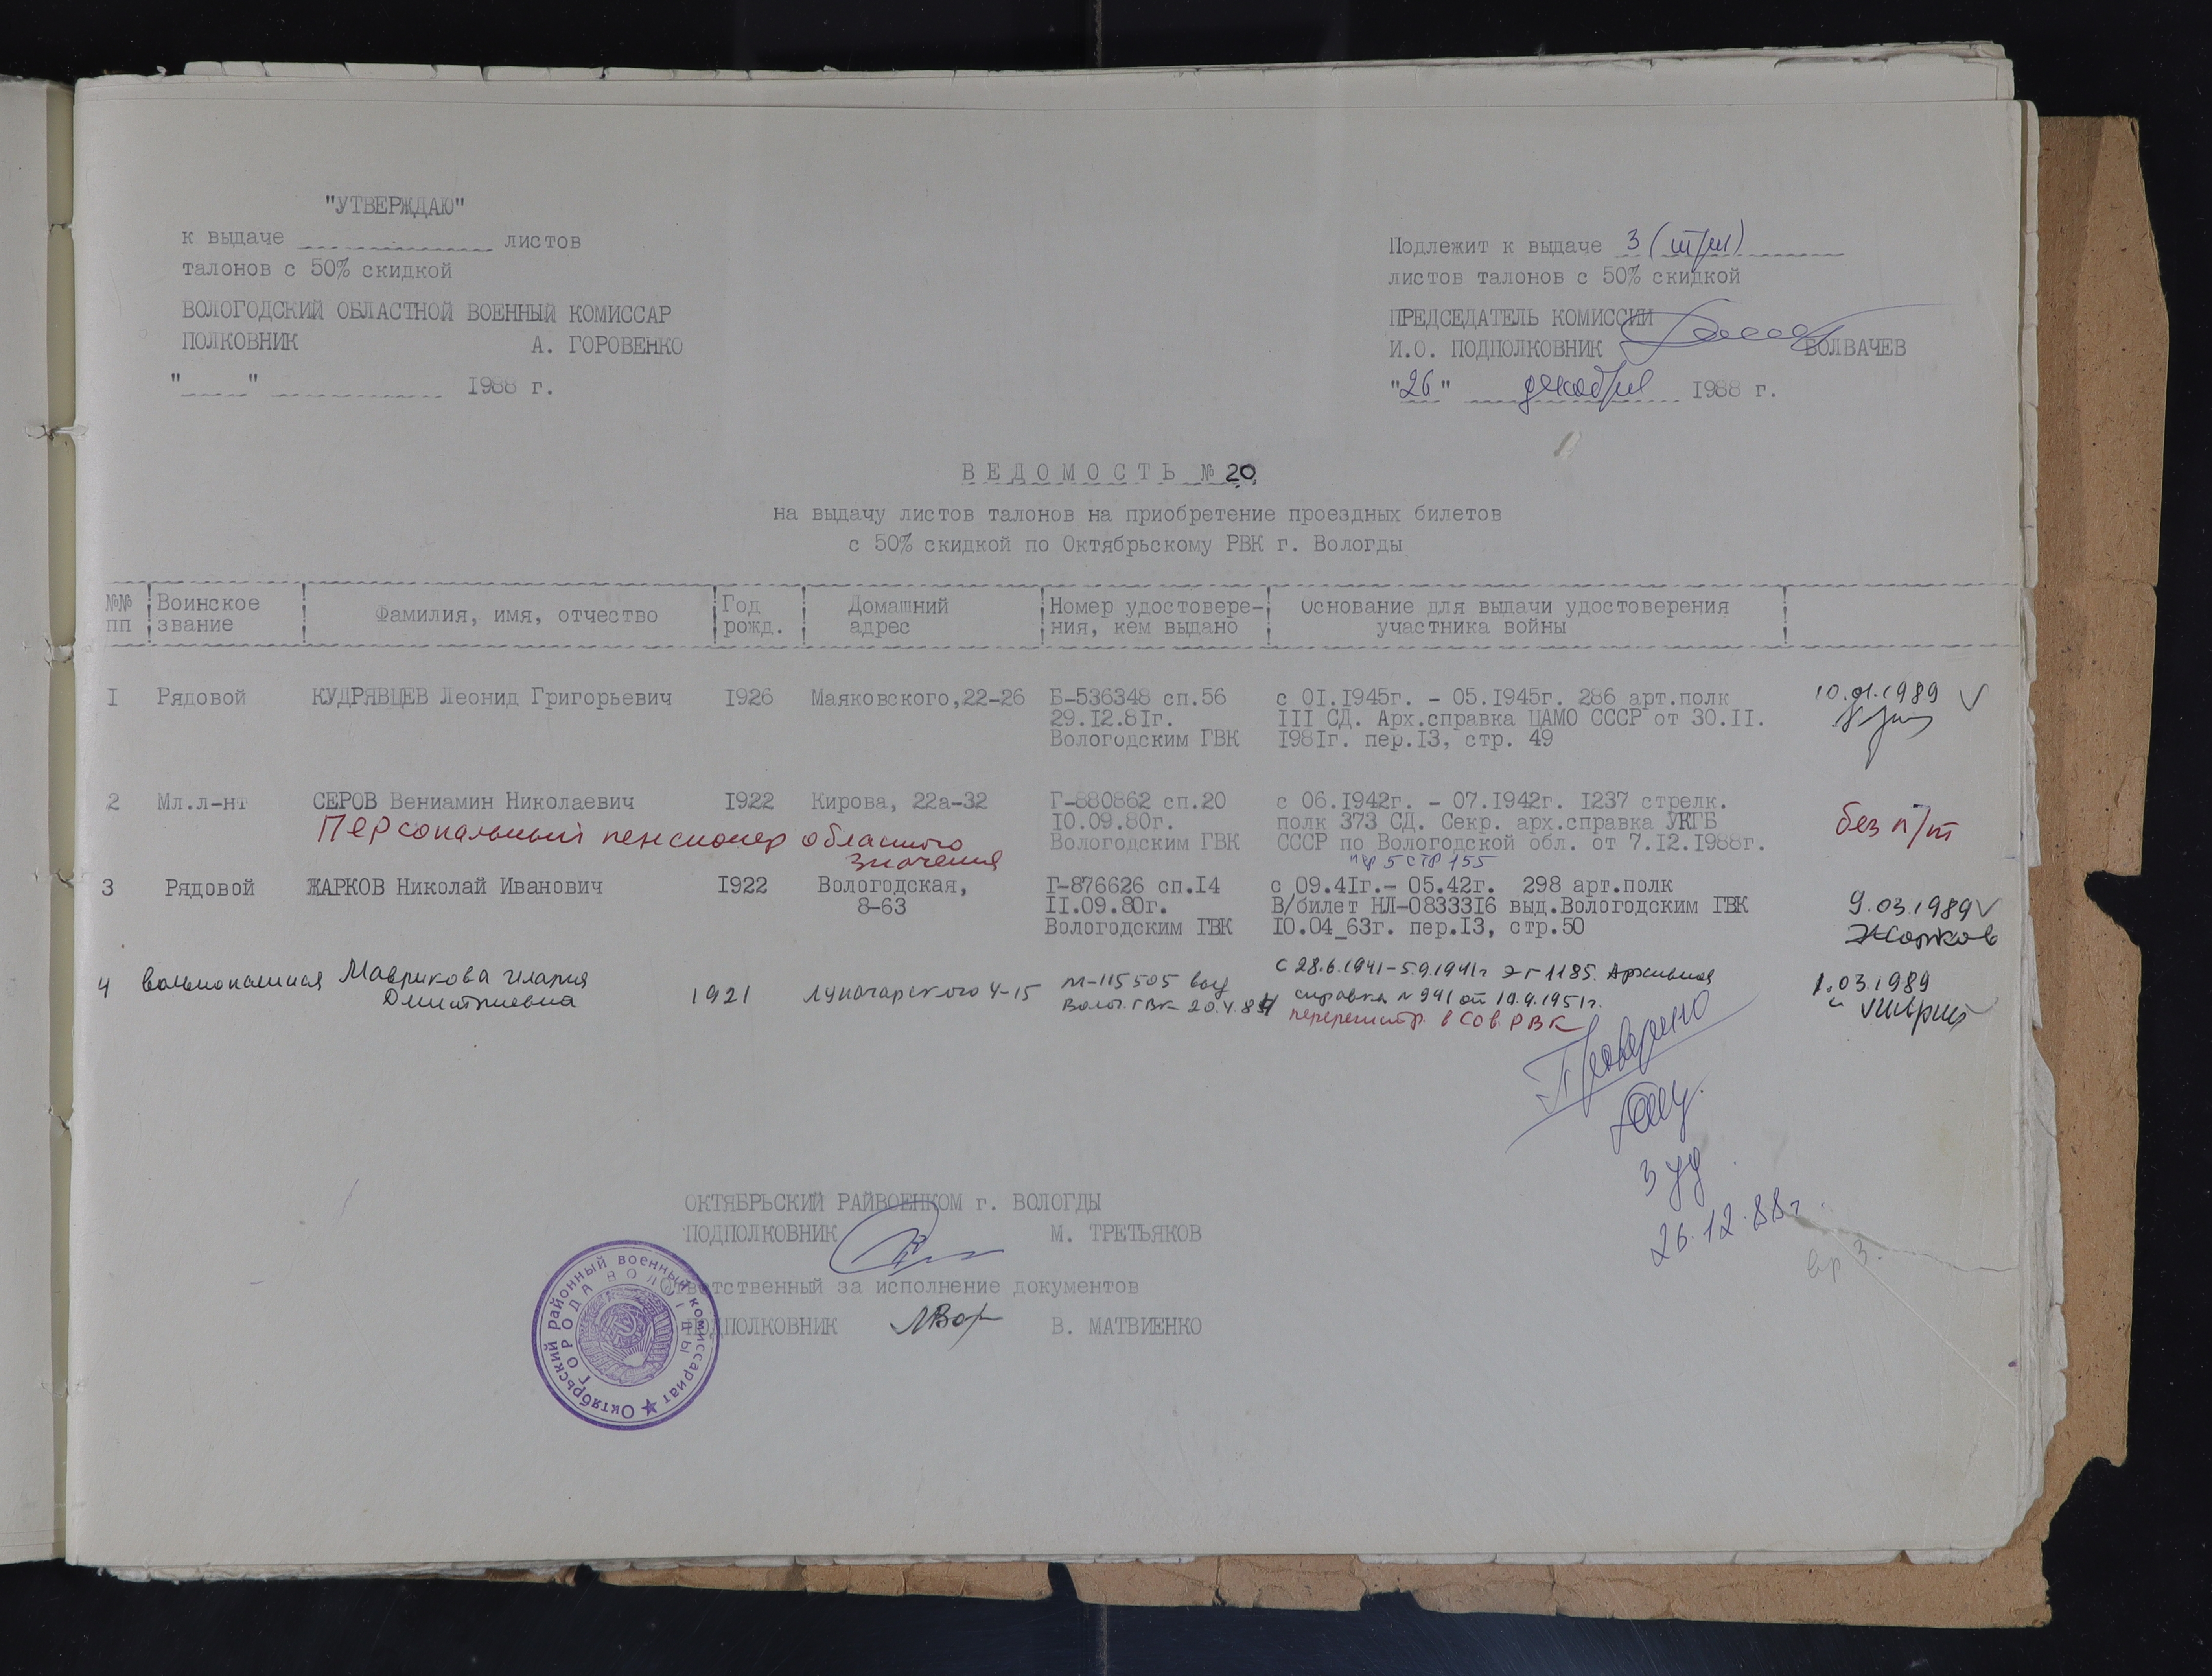 "УТВЕРЖДАЮ"
к выдаче листов
талонов с 50% скидкой
ВОЛОГОДСКИЙ ОБЛАСТНОЙ ВОЕННЫЙ КОМИССАР
ПОЛКОВНИК А. ГОРОВЕНКО
" " 1988 г.
Подлежит к выдаче 3 (три)
листов талонов с 50% скидкой
ПРЕДСЕДАТЕЛЬ КОМИССИИ
И.О. ПОДПОЛКОВНИК ВОЛВАЧЕВ
"26" декабря 1988 г.
ВЕДОМОСТЬ № 20
на выдачу листов талонов на приобретение проездных билетов
с 50% скидкой по Октябрьскому РВК г. Вологды
№№ Воинское Фамилия, имя, отчество Год Домашний Номер удостовере- Основание для выдачи удостоверения
пп звание рожд. адрес ния, кем выдано участника войны
I Рядовой КУДРЯВЦЕВ Леонид Григорьевич I926 Маяковского,22-26 Б-536348 сп.56 с 0I.I945г. - 05.I945г. 286 арт.полк 10.01.1989 V
29.I2.8Iг. III СД. Арх.справка ЦАМО СССР от 30.II.
Вологодским ГВК I98Iг. пер.I3, стр. 49
2 Мл.л-нт СЕРОВ Вениамин Николаевич I922 Кирова, 22а-32 Г-880862 сп.20 с 06.I942г. - 07.I942г. I237 стрелк. без п/т
Персональный пенсионер областного 10.09.80г. полк 373 СД. Секр. арх.справка УКГБ
значения Вологодским ГВК СССР по Вологодской обл. от 7.I2.I988г.
пер 5 стр 155
3 Рядовой ЖАРКОВ Николай Иванович I922 Вологодская, Г-876626 сп.I4 с 09.4Iг.- 05.42г. 298 арт.полк 9.03.1989 V
8-63 II.09.80г. В/билет НЛ-08333I6 выд.Вологодским ГВК Жарков
Вологодским ГВК I0.04_63г. пер.I3, стр.50
4 вольнонаемная Маврикова Мария 1921 Луначарского 4-15 М-115505 выд с 28.6.1941-5.9.1941г ЭГ 1185. Архивная 1.03.1989
Дмитриевна Волог. ГВК 20.4.84 справка № 941 от 10.4.1951г.
перерегистр. в Сов. РВК
Проверено
3 уд
26.12.88г.
ОКТЯБРЬСКИЙ РАЙВОЕНКОМ г. ВОЛОГДЫ
ПОДПОЛКОВНИК М. ТРЕТЬЯКОВ
Ответственный за исполнение документов
ПОДПОЛКОВНИК В. МАТВИЕНКО
Октябрьский районный военный комиссариат
ГОРОДА ВОЛОГДЫ